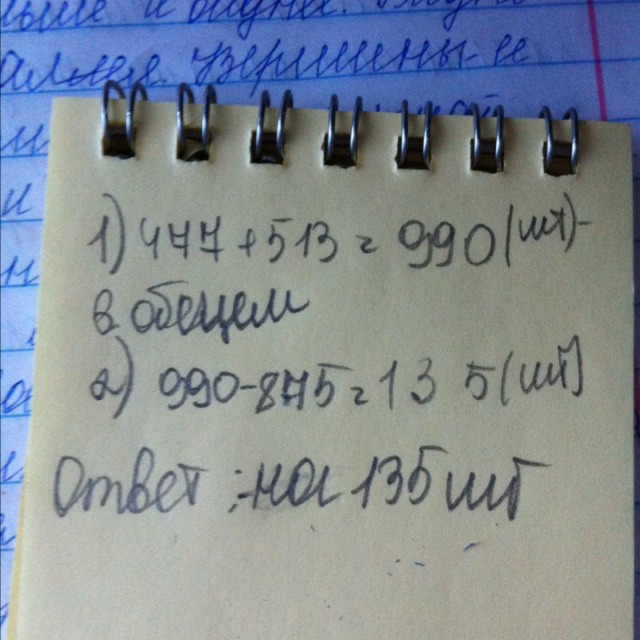 вершины
1) 477 + 513 = 990 (шт) -
в общем
2) 990 - 875 = 135 (шт)
Ответ: на 135 шт